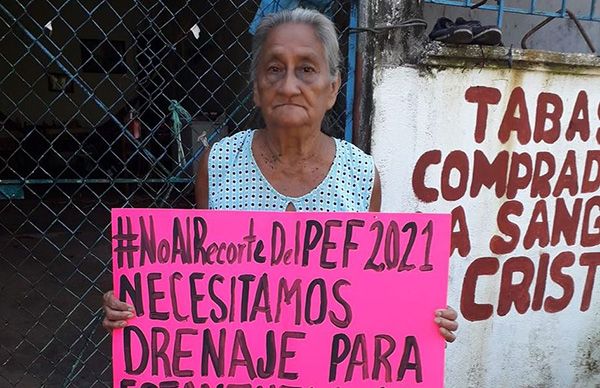 #NoAlRecorteDelPEF2021
NECESITAMOS
DRENAJE PARA
TABAS
COMPRAD
LA SANG
CRIST